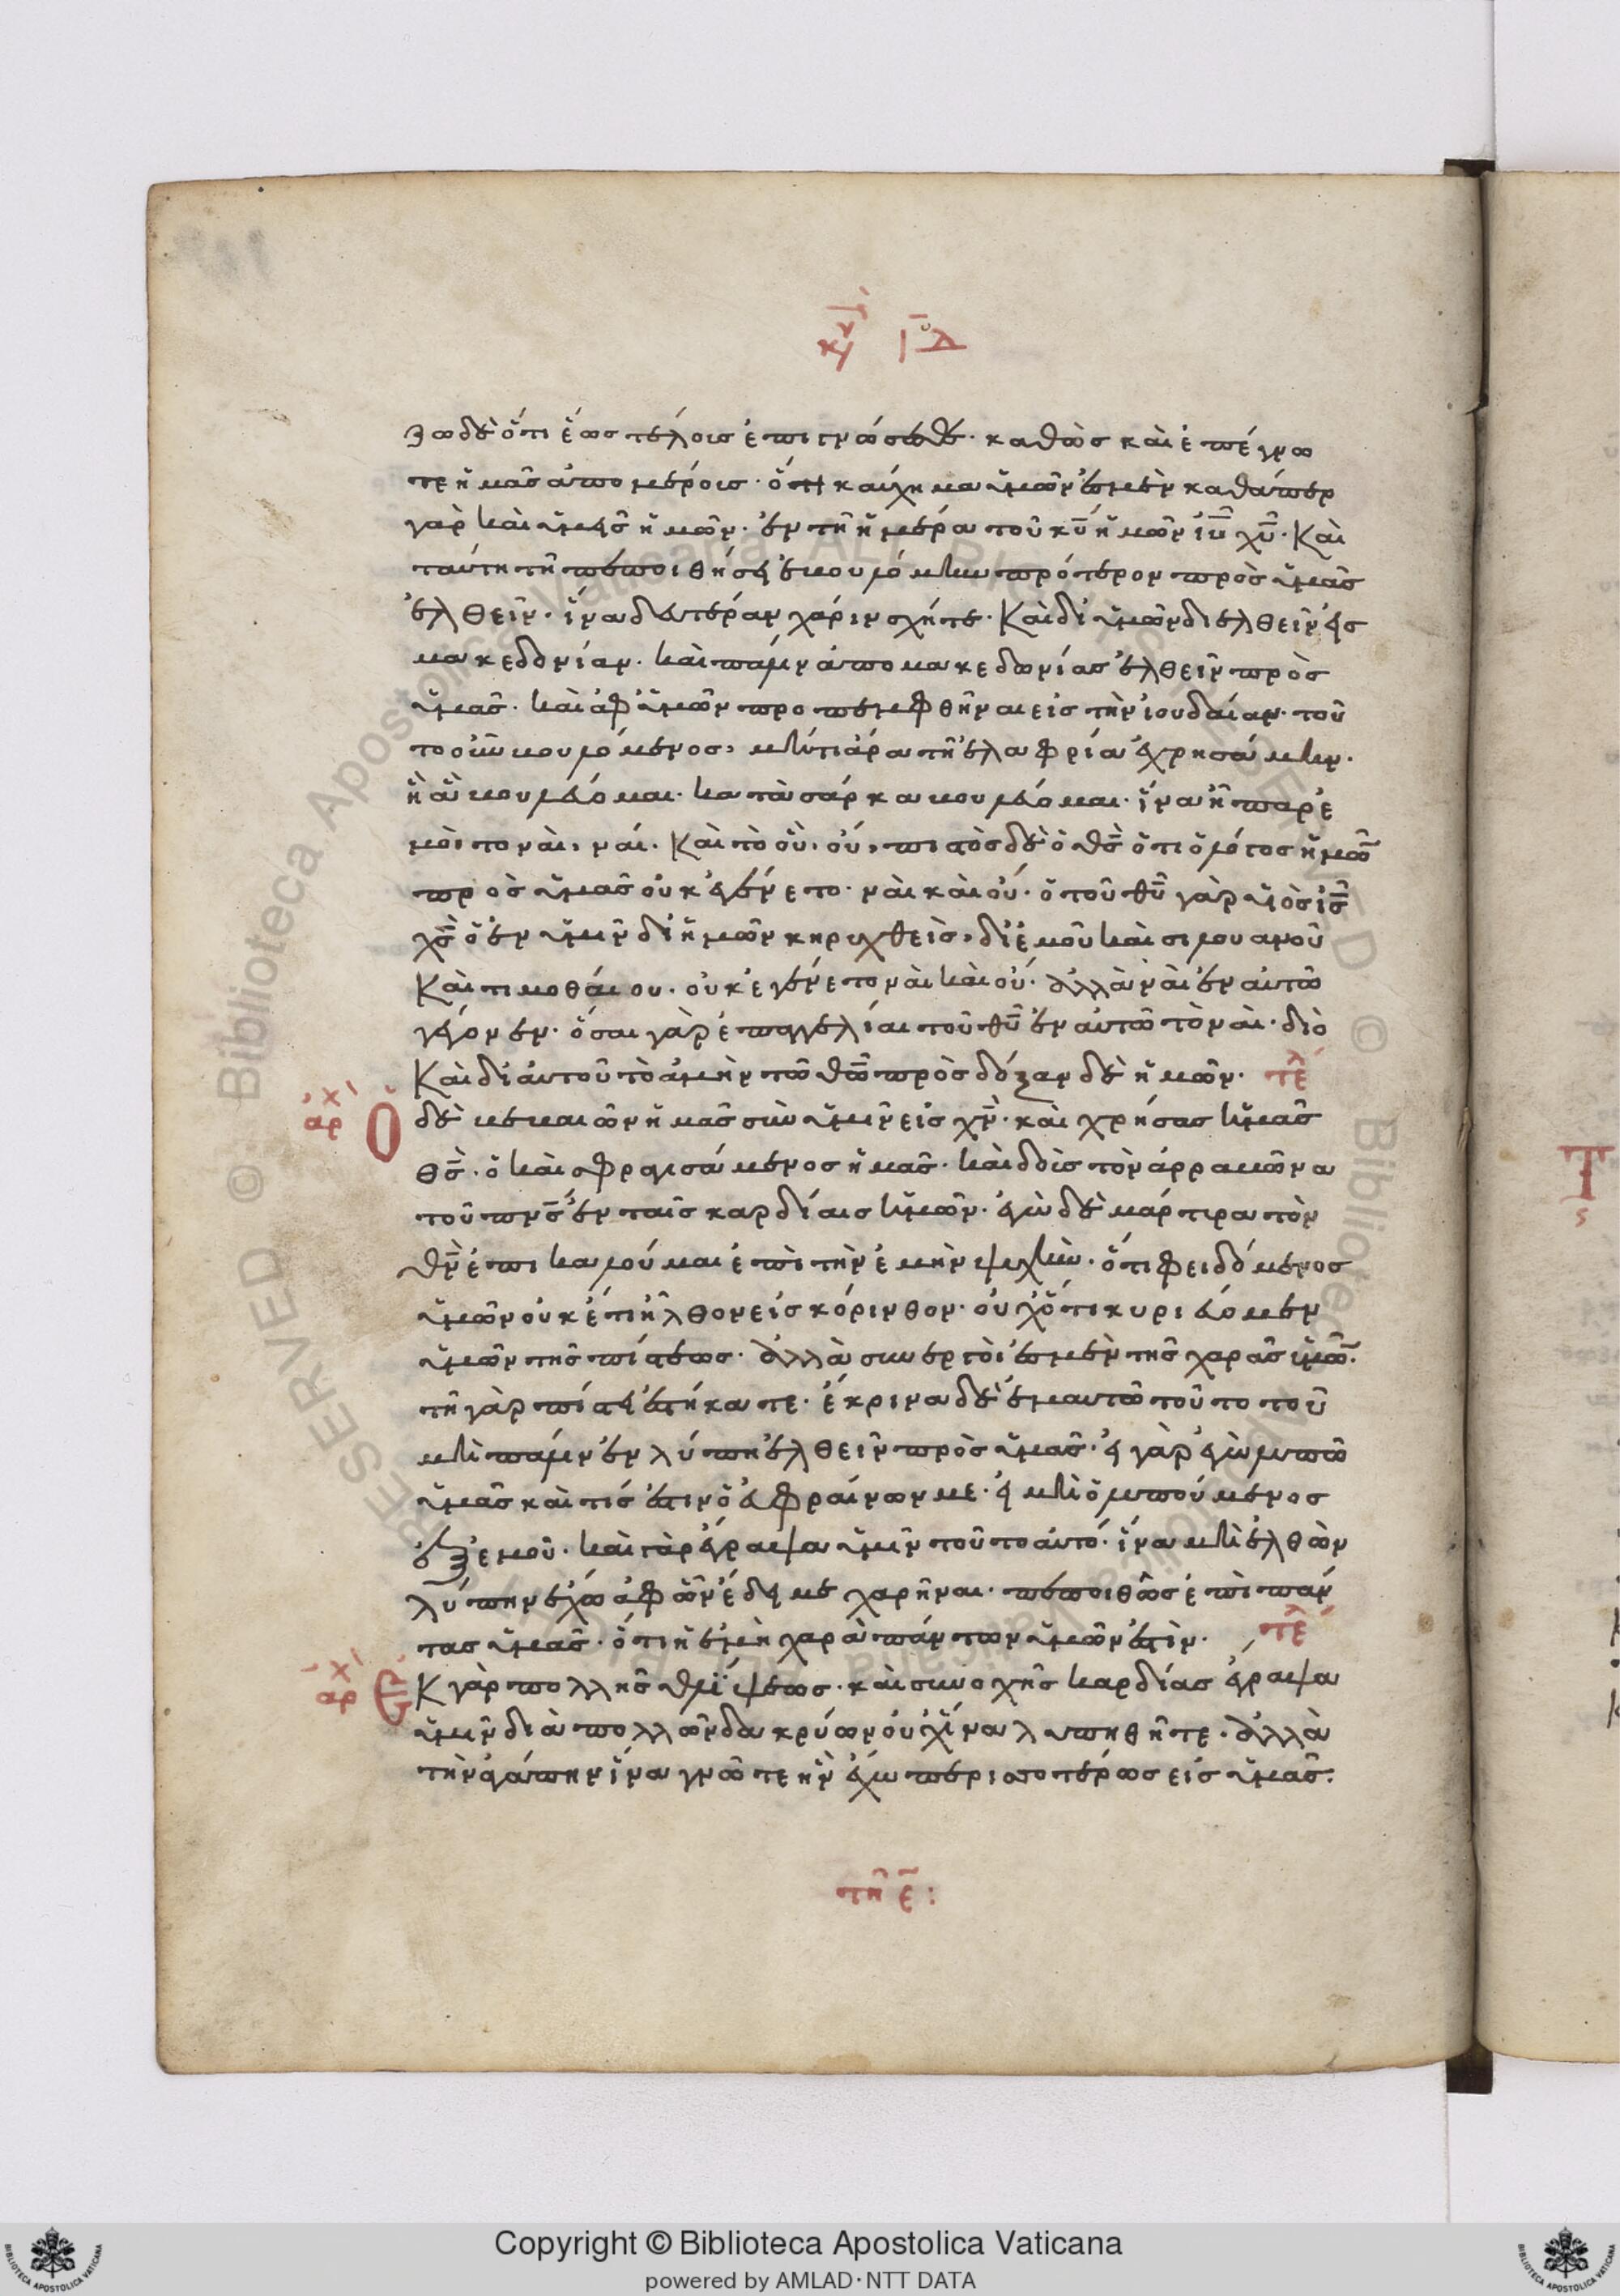 κυ ΙΔ
ζω δὲ ὅτι ἕως τέλους ἐπιγνώσεσθε· καθὼς καὶ ἐπέγνω
τε ἡμᾶς ἀπο μέρους· ὅτι καύχημα ὑμῶν ἐσμὲν καθάπερ
γὰρ καὶ ὑμεῖς ἡμῶν· ἐν τῆ ἡμέρα τοῦ κυ ἡμῶν ιυ χυ· Καὶ
ταύτη τῆ πεποιθήσει ἐβουλόμην πρότερον πρὸς ὑμᾶς
ἐλθεῖν· ἵνα δευτέραν χάριν σχῆτε· Καὶ δι ὑμῶν διελθεῖν εἰς
μακεδονίαν· καὶ πάλιν ἀπο μακεδωνίας ἐλθεῖν πρὸς
ὑμᾶς· καὶ ἀφ ὑμῶν προπεμφθῆναι εἰς τὴν ἰουδαίαν· τοῦ
το οὖν βουλόμενος, μήτι ἄρα τῆ ἐλαφρία ἐχρησάμην·
ἢ ἃ βουλεύομαι· κατὰ σάρκα βουλεύομαι· ἵνα ἦ παρ ἐ
μοὶ το ναὶ, ναί· Καὶ τὸ οὒ, οὔ, πιστὸς δὲ ὁ θς ὅτι ὁ λόγος ἡμῶν
πρὸς ὑμᾶς οὐκ ἐγένετο· ναὶ καὶ οὔ· ὁ τοῦ θυ γὰρ υἱὸς ις
χς ὁ ἐν ὑμῖν δι ἡμῶν κηρυχθεὶς, δι ἐμοῦ καὶ σιλουανοῦ
Καὶ τιμοθέου· οὐκ ἐγένετο ναὶ καὶ οὔ· ἀλλὰ ναὶ ἐν αὐτῶ
γέγονεν· ὅσαι γὰρ ἐπαγγελίαι τοῦ θυ ἐν αὐτῶ τὸ ναὶ· διὸ
Καὶ δι αὐτοῦ τὸ ἀμὴν τῶ θῶ πρὸς δόξαν δὲ ἡμῶν· τε
αρχ Ὁ δὲ βεβαιῶν ἡμᾶς σὺν ὑμῖν εἰς χν· καὶ χρήσας ἡμᾶς
θς· ὁ καὶ σφραγισάμενος ἡμᾶς· καὶ δοὺς τὸν ἀρραβῶνα
τοῦ πνς ἐν ταῖς καρδίαις ἡμῶν· ἐγὼ δὲ μάρτυρα τὸν
θν ἐπικαλοῦμαι ἐπὶ τὴν ἐμὴν ψυχὴν· ὅτι φειδόμενος
ὑμῶν οὐκ έτι ἦλθον εἰς κόρινθον· οὐχ ὅτι κυριεύομεν
ὑμῶν τῆς πίστεως· ἀλλὰ συνεργοὶ ἐσμὲν τῆς χαρᾶς ὑμῶν·
τῆ γὰρ πίστει ἑστήκατε· ἔκρινα δὲ ἐμαυτῶ τοῦτο τοῦ
μὴ πάλιν ἐν λύπη ἐλθεῖν πρὸς ὑμᾶς· εἰ γὰρ ἐγὼ λυπῶ
ὑμᾶς καὶ τίς ἐστιν ὁ εὐφραίνων με· εἰ μὴ ὁ λυπούμενος
ἐξ ἐμοῦ· καὶ γὰρ ἔγραψα ὑμῖν τοῦτο αὐτό· ἵνα μὴ ἐλθὼν
λύπην ἔχω ἀφ ὧν ἔδει με χαρῆναι· πεποιθὼς ἐπὶ πάν
τας ὑμᾶς· ὅτι ἡ ἐμὴ χαρὰ πάντων ὑμῶν ἐστὶν· τε
αρχ ΕΚ γὰρ πολλῆς θλίψεως· καὶ συνοχῆς καρδίας ἔγραψα
ὑμῖν διὰ πολλῶν δακρύων οὐχ ἵνα λυπηθῆτε· ἀλλὰ
τὴν ἀγάπην ἵνα γνῶτε ἣν ἔχω περισσοτέρως εἰς ὑμᾶς·
τῆ ε:
Copyright © Biblioteca Apostolica Vaticana
powered by AMLAD·NTT DATA